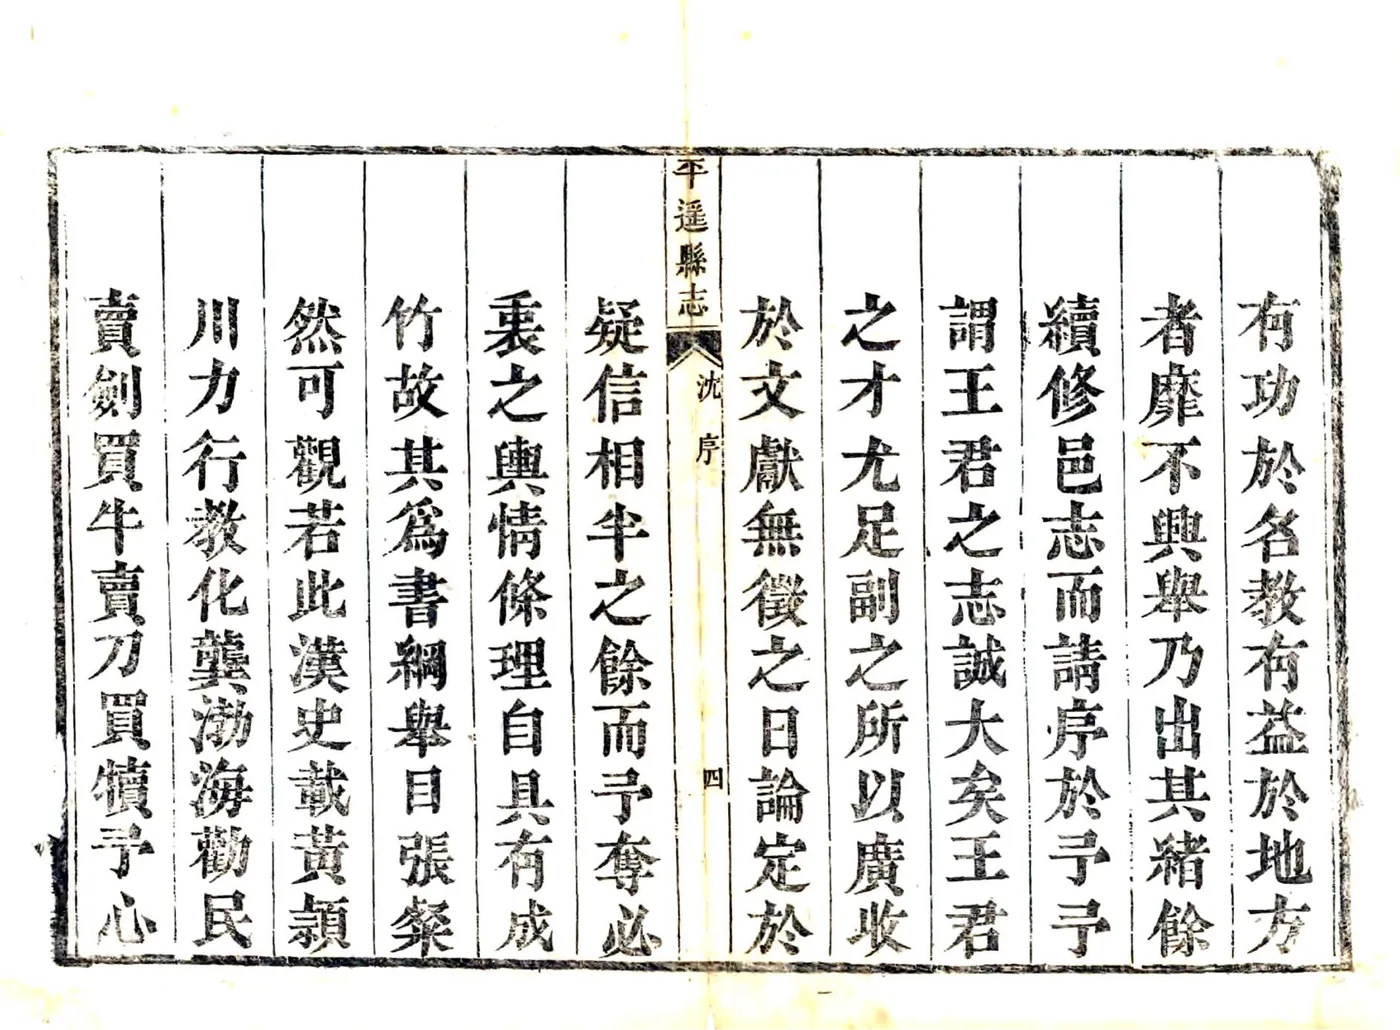 有功於名教有益於地方
者靡不興舉乃出其緒餘
續修邑志而請序於予予
謂王君之志誠大矣王君
之才尤足副之所以廣收
於文獻無徵之日論定於
平遥縣志
沈序
四
疑信相半之餘而予奪必
衷之輿情條理自具有成
竹故其爲書綱舉目張粲
然可觀若此漢史載黃潁
川力行教化龔渤海勸民
賣劍買牛賣刀買犢予心